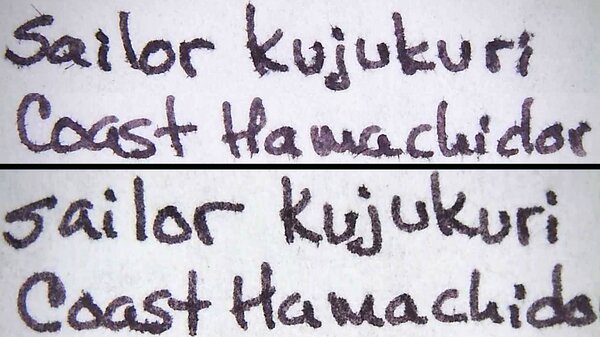 Sailor Kujukuri
Coast Hamachidor
sailor Kujukuri
Coast Hamachido